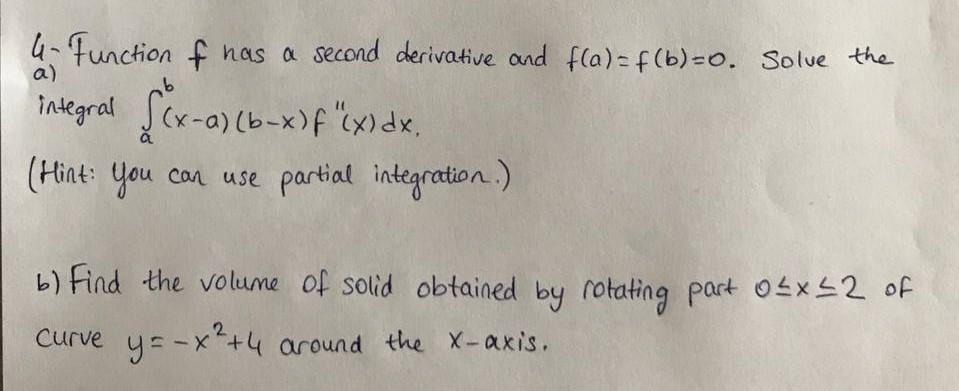 4- Function f has a second derivative and f(a)=f(b)=0. Solve the
a)
integral ∫ₐᵇ(x-a)(b-x)f"(x)dx.
(Hint: You can use partial integration.)
b) Find the volume of solid obtained by rotating part 0≤x≤2 of
curve y=-x²+4 around the x-axis.